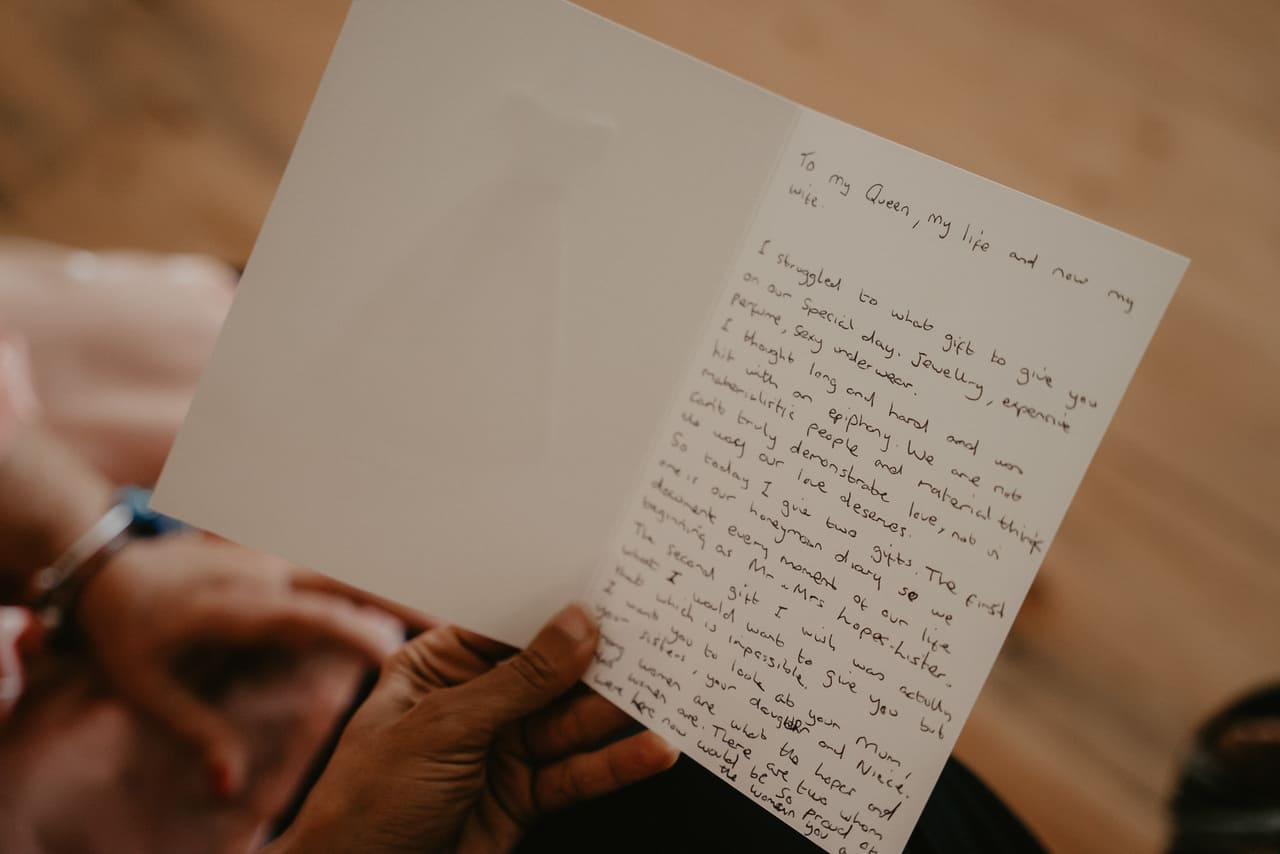 To my Queen, my life and now my
wife.
I struggled to what gift to give you
on our special day. Jewellry, expensive
perfume, sexy underwear.
I thought long and hard and was
hit with an epiphany. We are not
materialistic people and material things
can't truly demonstrate love, not in
the way our love deserves.
So today I give two gifts. The first
one is our honeymoon diary so we
document every moment of our life
beginning as Mr & Mrs Loper-Lister.
The second gift I wish was actually
what I would want to give you but
that which is impossible.
I want you to look at your Mum,
your sisters, your daughter and Niece.
women are what the loper and
women are. There are two whom
were here now would be so proud of
the women you a